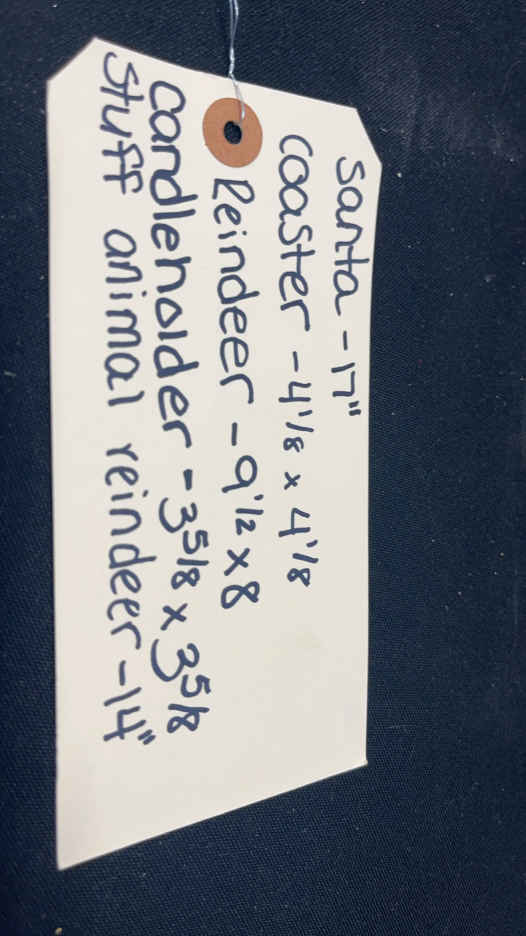 Santa - 17"
Coaster - 4 1/8 x 4 1/8
Reindeer - 9 1/2 x 8
Candleholder - 3 5/8 x 3 5/8
Stuff animal reindeer - 14"